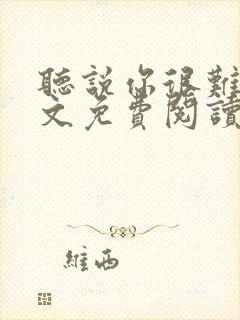 聽說你很難
文免費閱讀
維西